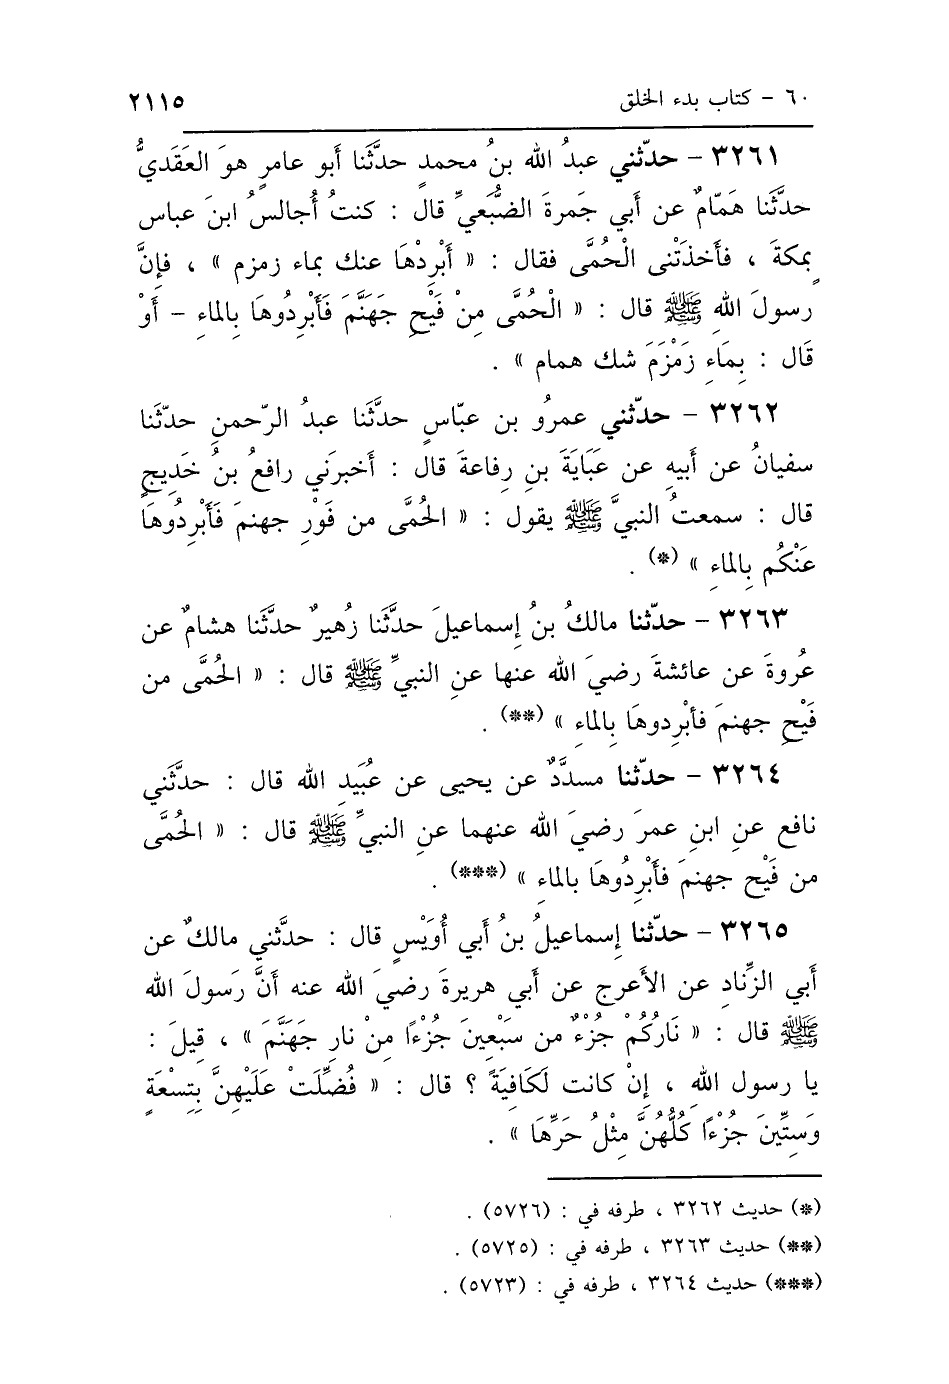 ٦٠ - كتاب بدء الخلق ٢١١٥
٣٢٦١ - حدّثني عبدُ الله بنُ محمدٍ حدثَّنا أبو عامرٍ هوَ العَقَديُّ
حدثَّنا هَمّامٌ عن أبي جَمرةَ الضُّبَعيِّ قال : كنتُ أُجالسُ ابنَ عباس
بِمكةَ ، فأَخذَتْنى الْحُمَّى فقال : « أَبْرِدْهَا عنك بماء زمزم » ، فإنَّ
رسولَ اللهِ ﷺ قال : « الْحُمَّى مِنْ فَيْحِ جَهَنَّمَ فَأَبْرِدُوهَا بِالماءِ - أَوْ
قَال : بِمَاءِ زَمْزَمَ شك همام » .
٣٢٦٢ - حدّثني عمرُو بن عبّاسٍ حدَّثَنا عبدُ الرّحمنِ حدّثَنا
سفيانُ عن أبيهِ عن عَبَايَةَ بنِ رفاعةَ قال : أخبرَني رافعُ بنُ خَديجٍ
قال : سمعتُ النبيَّ ﷺ يقول : « الحُمَّى من فَوْرِ جهنمَ فَأَبْرِدُوهَا
عَنْكُم بِالماءِ » (*) .
٣٢٦٣ - حدّثنا مالكُ بنُ إسماعيلَ حدَّثَنا زُهيرٌ حدَّثَنا هشامٌ عن
عُروةَ عن عائشةَ رضيَ الله عنها عنِ النبيِّ ﷺ قال : « الحُمَّى من
فَيْحِ جهنمَ فأبْرِدوهَا بِالماءِ » (**) .
٣٢٦٤ - حدّثنا مسدَّدٌ عن يحيى عن عُبَيدِ الله قال : حدَّثَني
نافع عنِ ابنِ عمرَ رضيَ الله عنهما عنِ النبيِّ ﷺ قال : « الحُمَّى
من فَيْحِ جهنمَ فأَبْرِدُوهَا بالماءِ » (***) .
٣٢٦٥ - حدّثنا إسماعيلُ بنُ أبي أُوَيْسٍ قال : حدَّثني مالكٌ عن
أَبي الزِّنادِ عن الأَعرج عن أَبي هريرةَ رضيَ الله عنه أنَّ رَسولَ الله
ﷺ قال : « نَارُكُمْ جُزْءٌ من سَبْعِينَ جُزْءًا مِنْ نارِ جَهَنَّمَ » ، قِيلَ :
يا رسول الله ، إنْ كانت لَكَافِيَةً ؟ قال : « فُضِّلَتْ عَلَيْهِنَّ بِتِسْعَةٍ
وَسِتِّينَ جُزْءًا كُلُّهُنَّ مِثْلُ حَرِّهَا » .
(*) حديث ٣٢٦٢ ، طرفه في : (٥٧٢٦) .
(**) حديث ٣٢٦٣ ، طرفه في : (٥٧٢٥) .
(***) حديث ٣٢٦٤ ، طرفه في : (٥٧٢٣) .